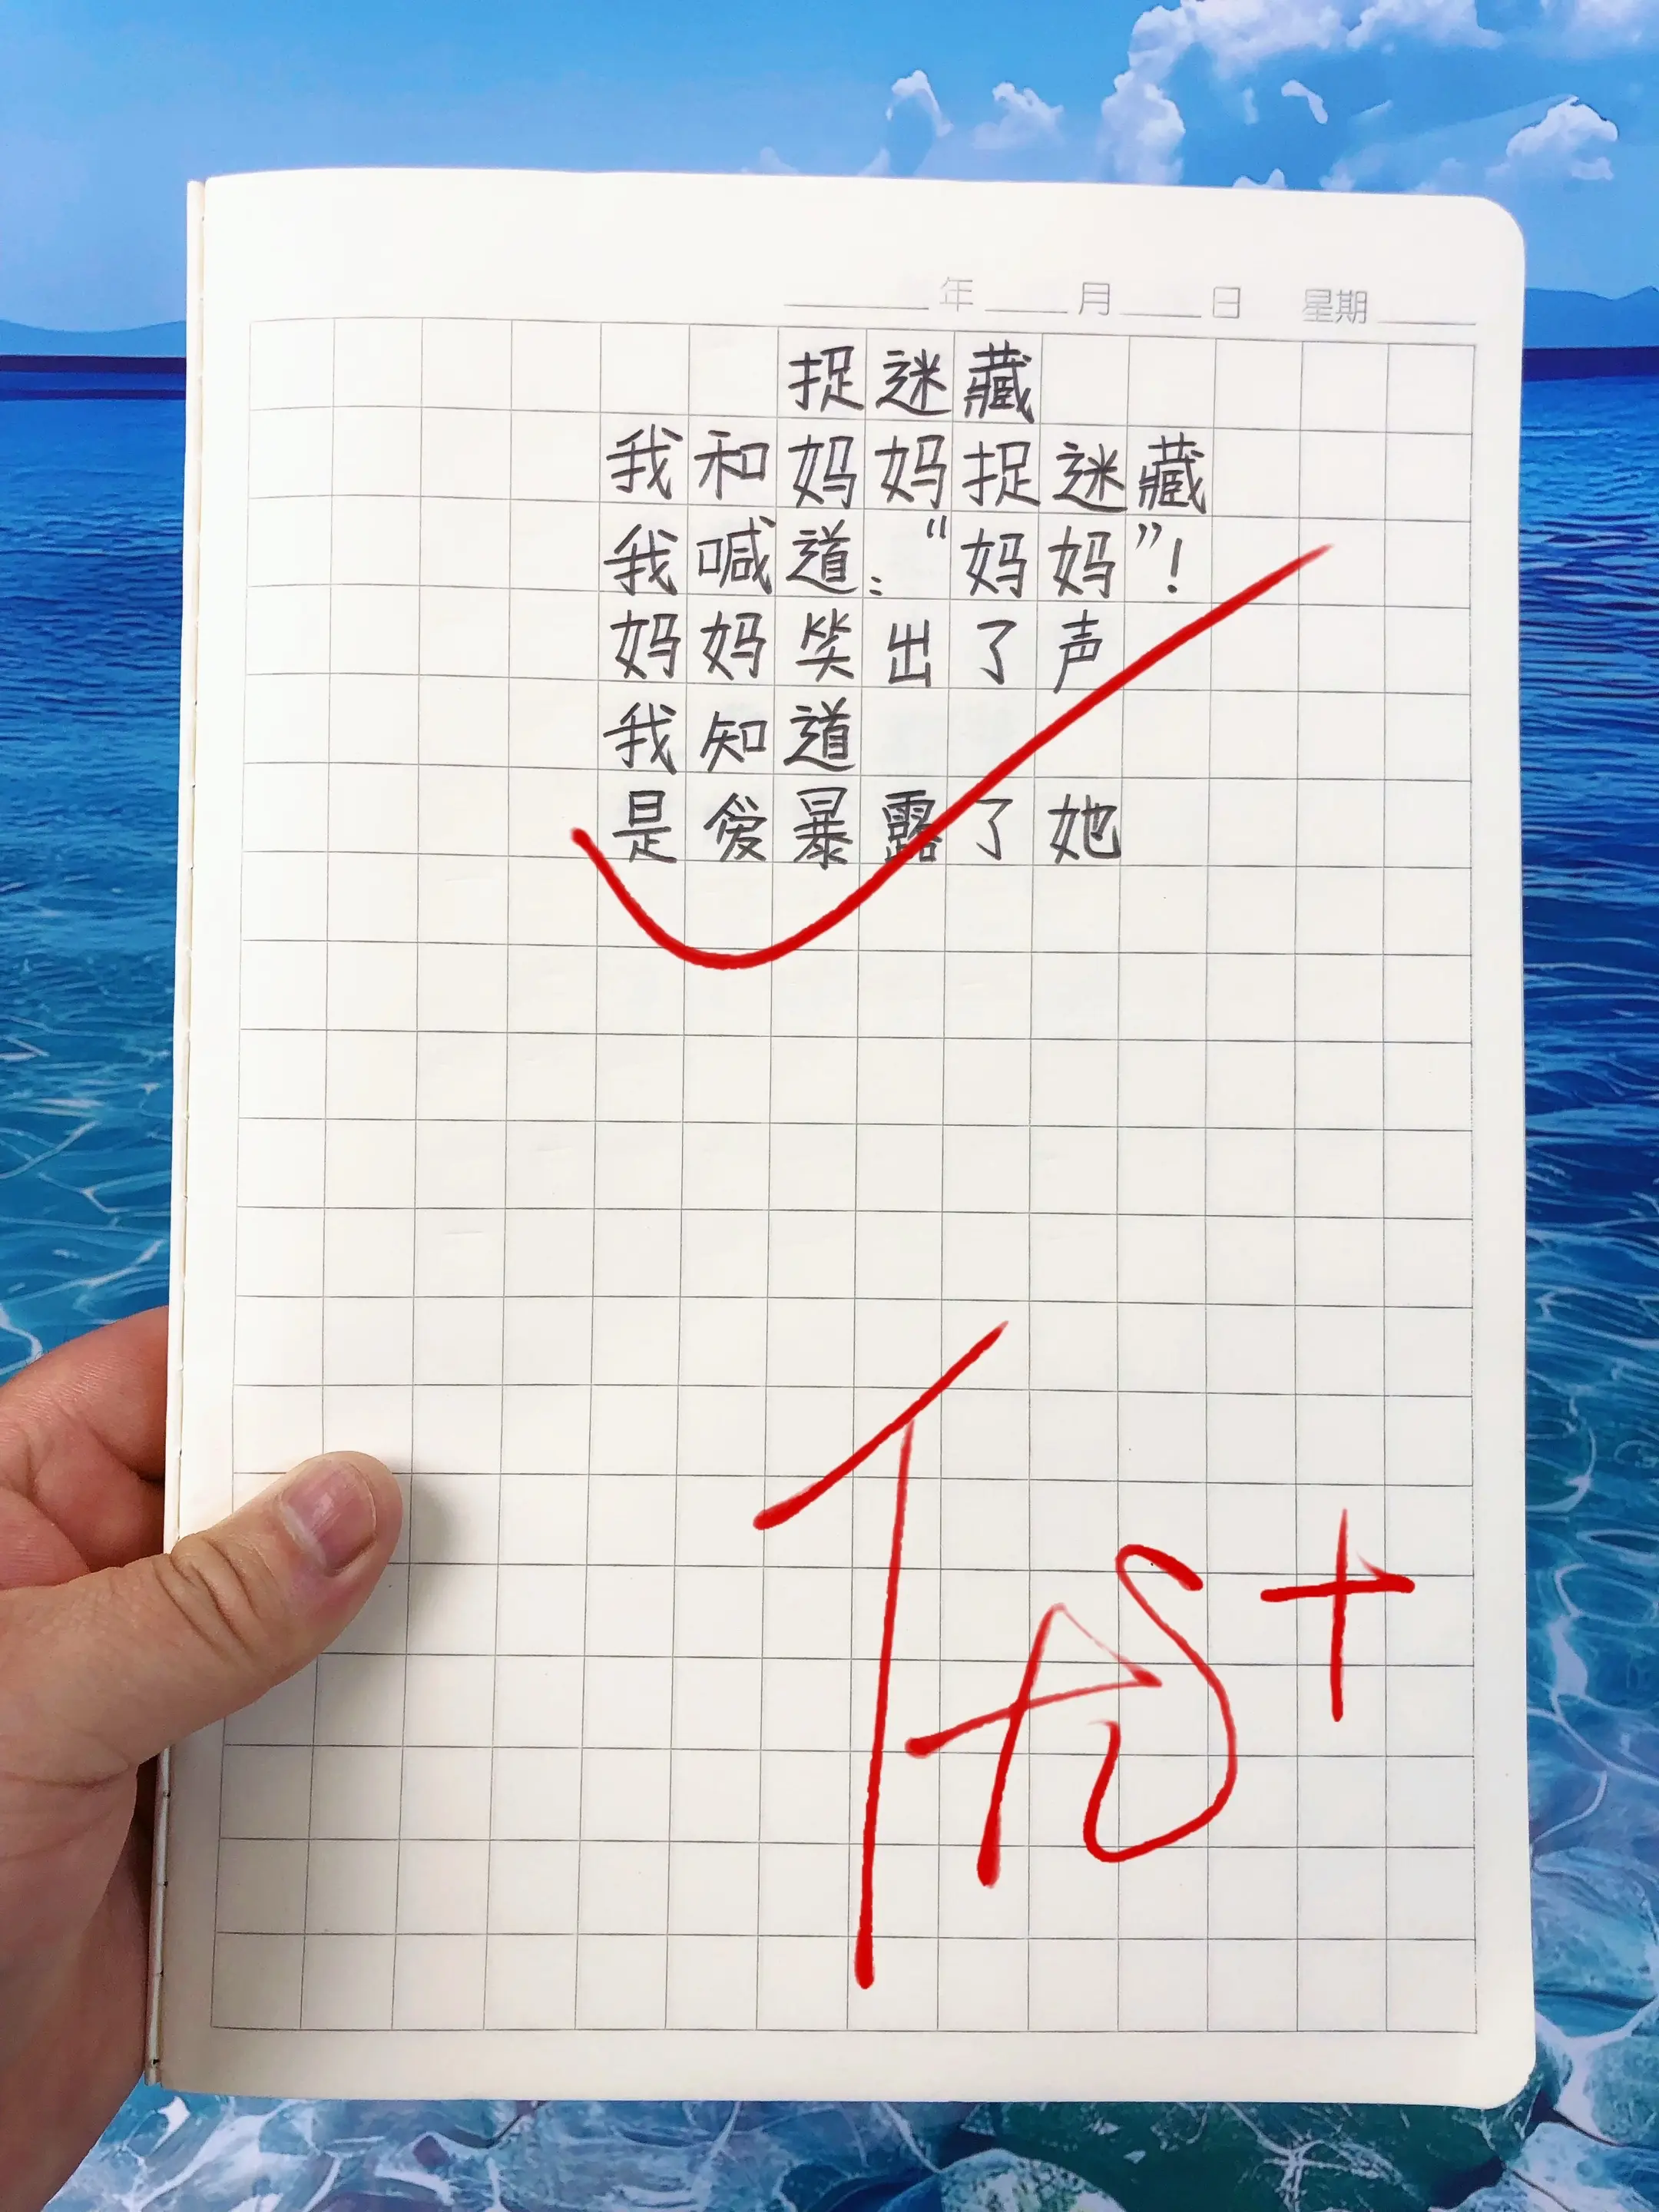 年 月 日 星期
捉迷藏
我和妈妈捉迷藏
我喊道：“妈妈”！
妈妈笑出了声
我知道
是爱暴露了她